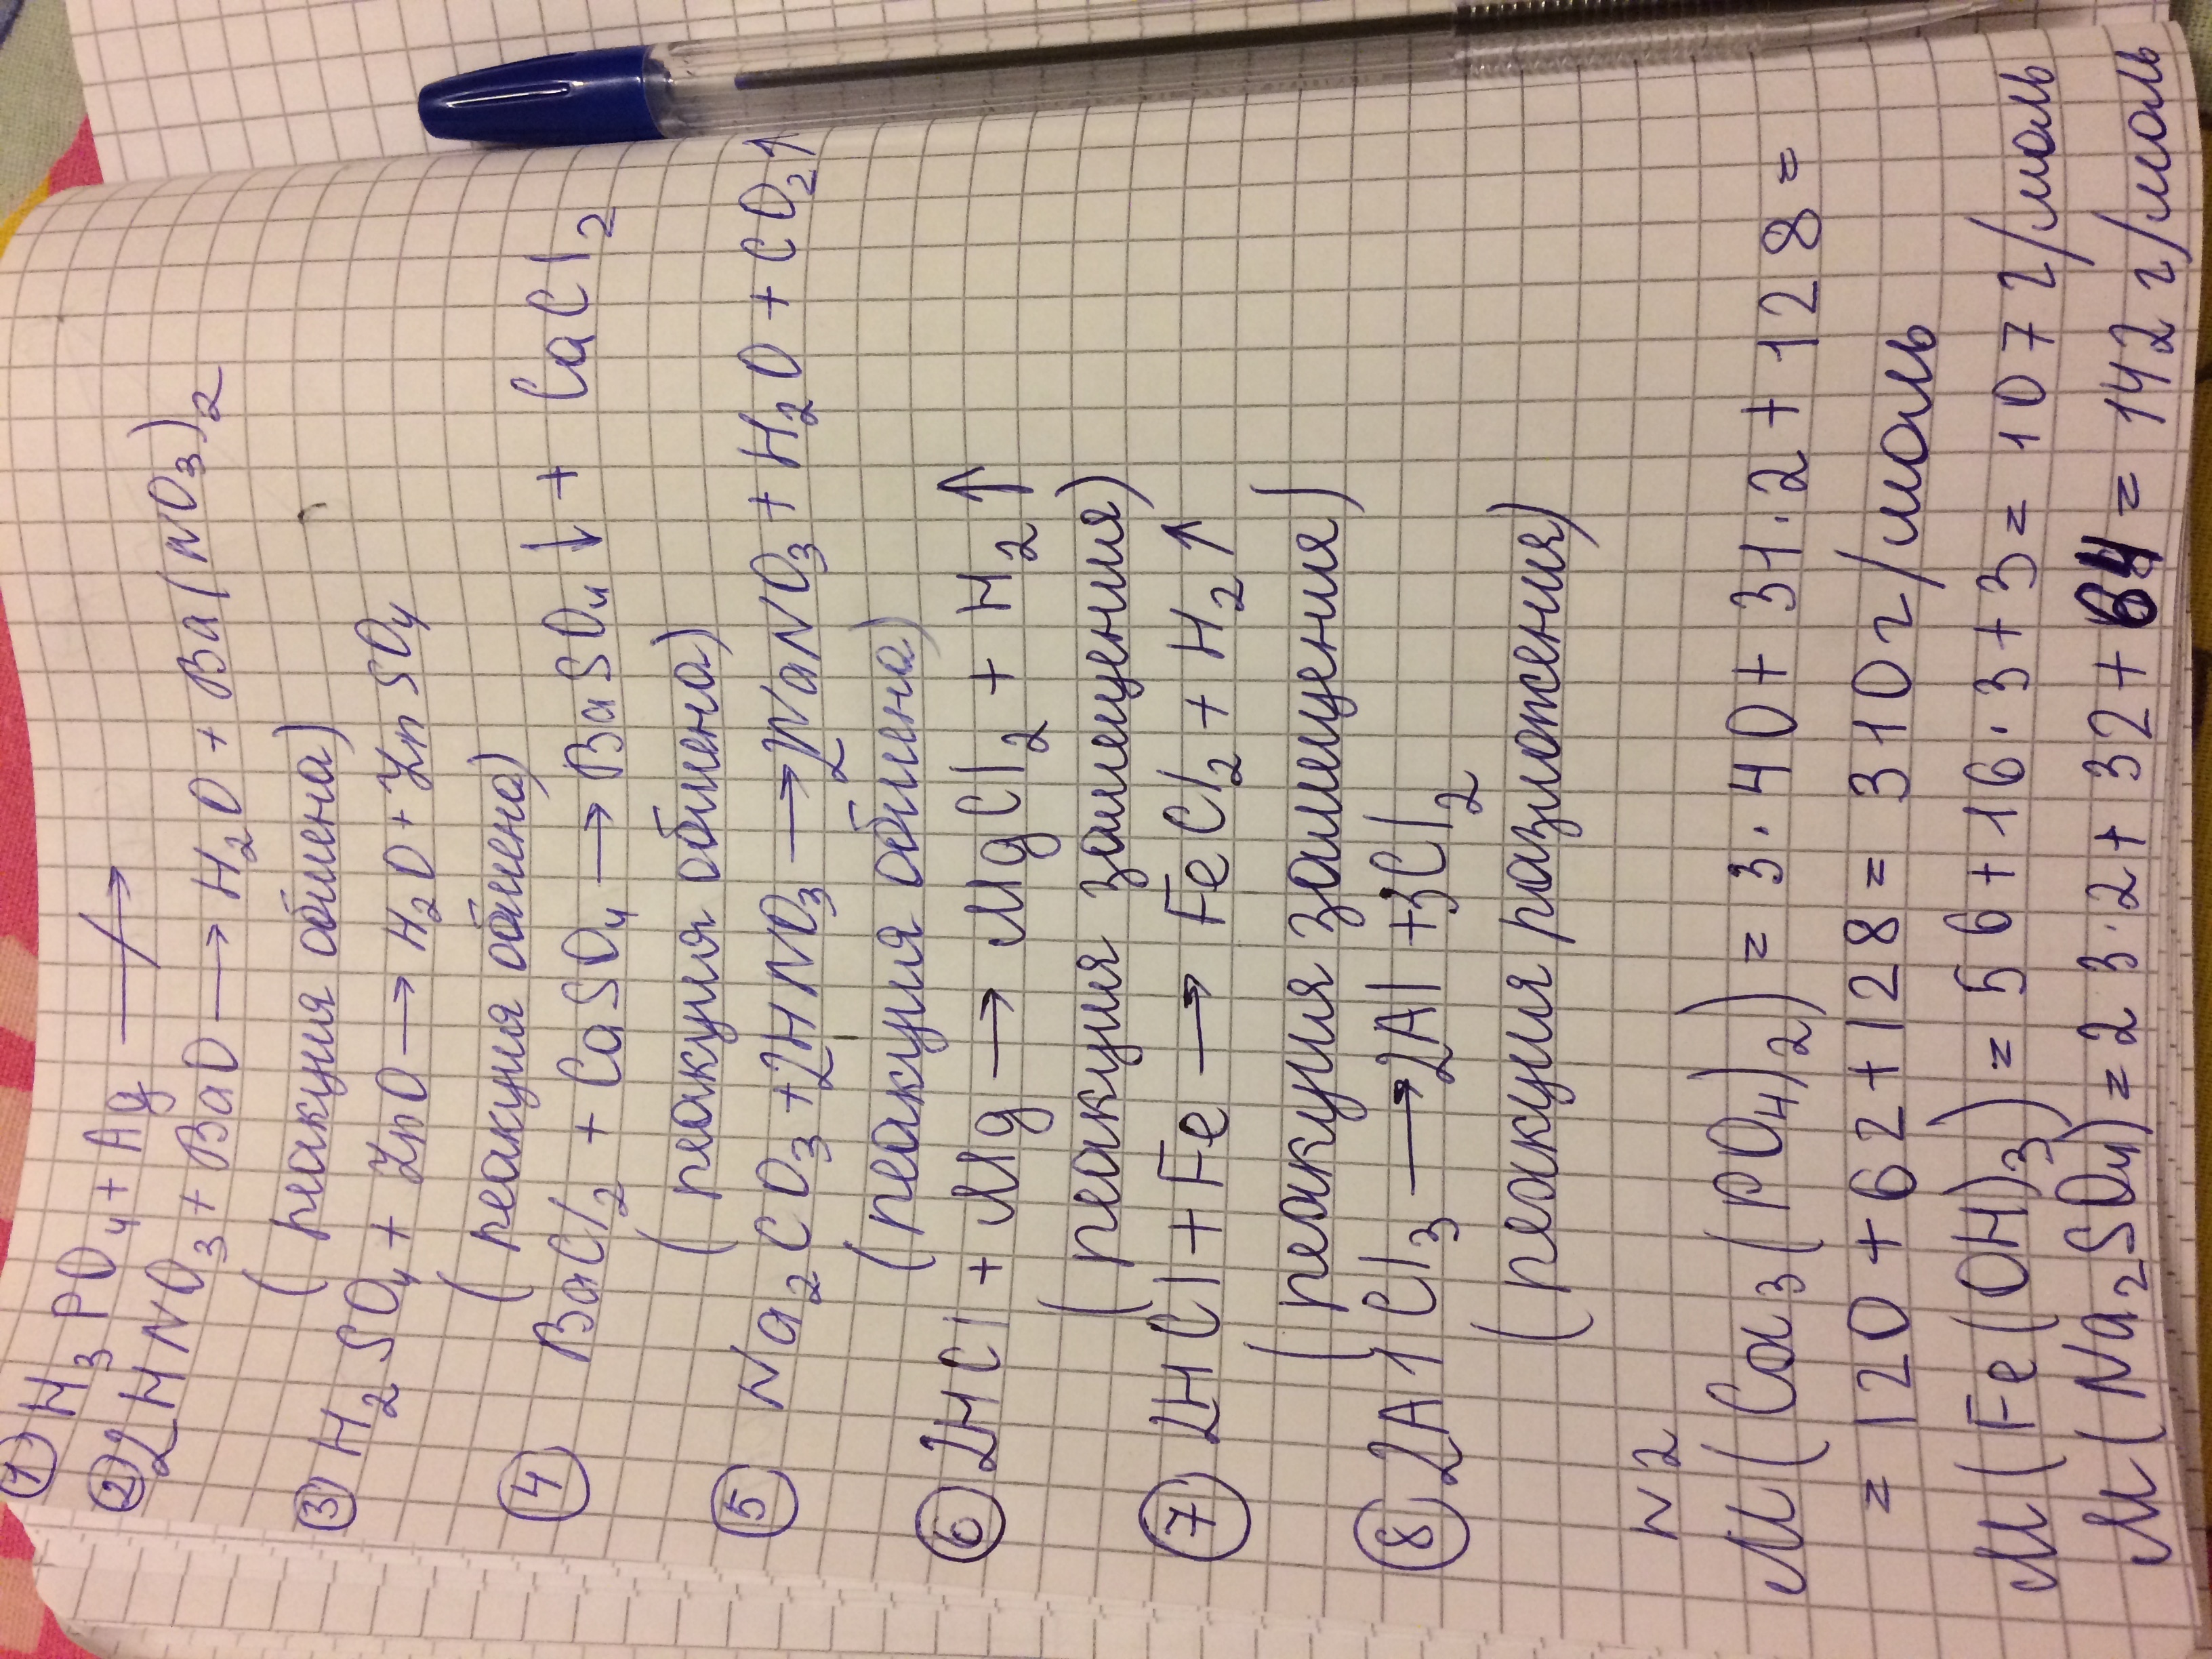 ① H₃PO₄ + Ag ⟶̸
② 2HNO₃ + BaO → H₂O + Ba(NO₃)₂
(реакция обмена)
③ H₂SO₄ + ZnO → H₂O + ZnSO₄
(реакция обмена)
④ BaCl₂ + CaSO₄ → BaSO₄↓ + CaCl₂
(реакция обмена)
⑤ Na₂CO₃ + 2HNO₃ → 2NaNO₃ + H₂O + CO₂↑
(реакция обмена)
⑥ 2HCl + Mg → MgCl₂ + H₂↑
(реакция замещения)
⑦ 2HCl + Fe → FeCl₂ + H₂↑
(реакция замещения)
⑧ 2AlCl₃ → 2Al + 3Cl₂
(реакция разложения)
N2
M(Ca₃(PO₄)₂) = 3·40 + 31·2 + 128 =
= 120 + 62 + 128 = 310 г/моль
M(Fe(OH)₃) = 56 + 16·3 + 3 = 107 г/моль
M(Na₂SO₄) = 23·2 + 32 + 64 = 142 г/моль